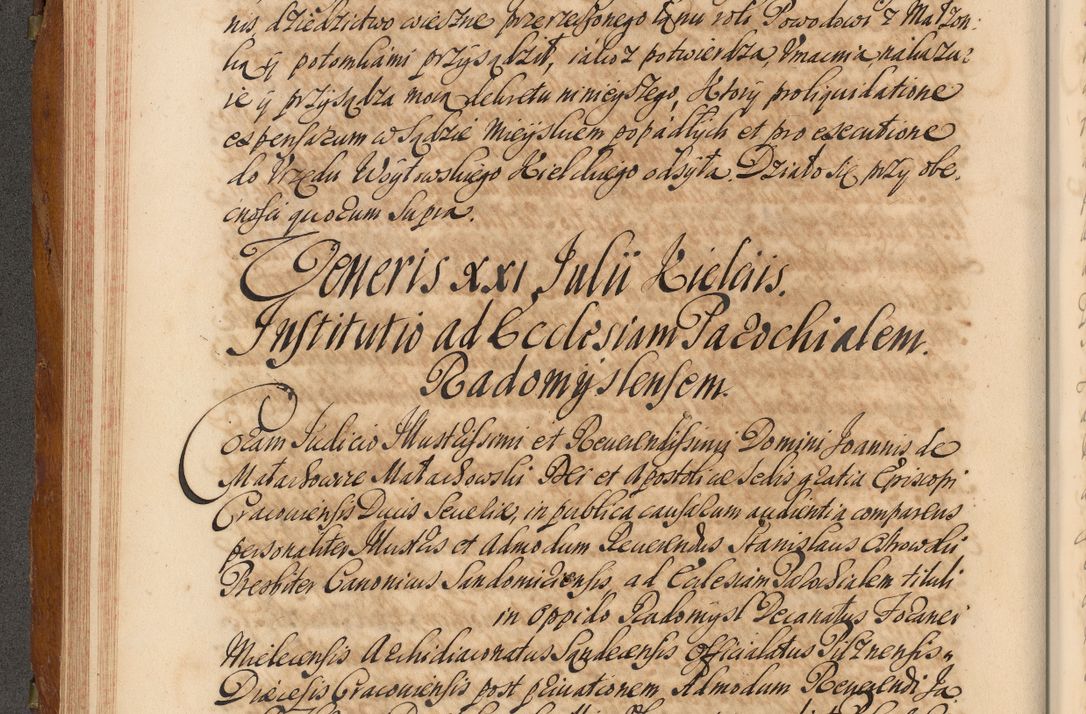 nis, dziedzictwo wieczne przerzeszonego łanu roli Powodowi z Małzon:
ką y potomkami przysądził, iakoz potwierdza, Vmacnia, nakazu:
ie y przysądza mocą dekretu ninieyszego, Ktory pro liquidatione
expensarum w Sądzie Mieyskiem popadłych et pro executione
do Vrzędu Woytowskiego Kieleckiego odsyła. Działo się przy obe:
cności quorum supra.
Veneris XXI Julii Kielciis.
Institutio ad Ecclesiam Parochialem
Radomyslensem.
Coram Iudicio Illustrissimi et Reverendissimi Domini Joannis de
Małachowice Małachowski Dei et Apostolicae Sedis gratia Episcopi
Cracoviensis Ducis Severiae, in publica causarum audientia comparens
personaliter Illustris et Admodum Reverendus Stanislaus
Presbiter Canonicus Sandomiriensis, ad Ecclesiam Parochialem tituli
in oppido Radomysl Decanatus Foranei
Mielecensis Archidiaconatus Sandecensis Officialatus Pilznensis
Diecesis Cracoviensis post privationem Admodum Reverendi Ja